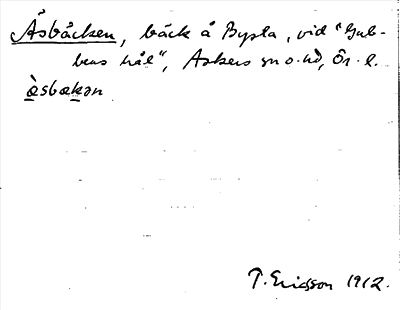 Åsbäcken, bäck å Bysta, vid "Gub-
bens hål", Askers sn o. hd, Ör. l.
æ̀sbækən
T. Ericsson 1912.